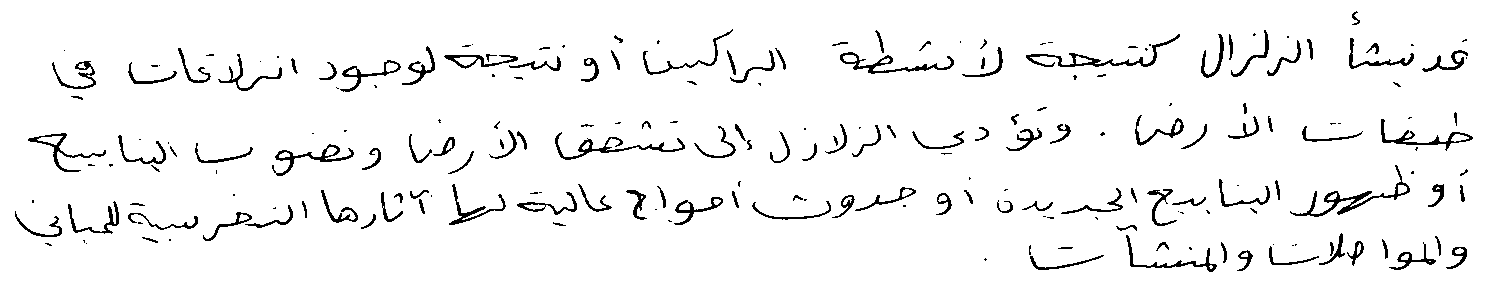 قد ينشأ الزلزال كنتيجة لأنشطة البراكين أو نتيجة لوجود انزلاقات في
طبقات الأرض . وتؤدي الزلازل إلى تشقق الأرض ونضوب الينابيع
أو ظهور الينابيع الجديدة أو حدوث أمواج عالية لها آثارها التخريبية للمباني
والمواصلات والمنشآت .